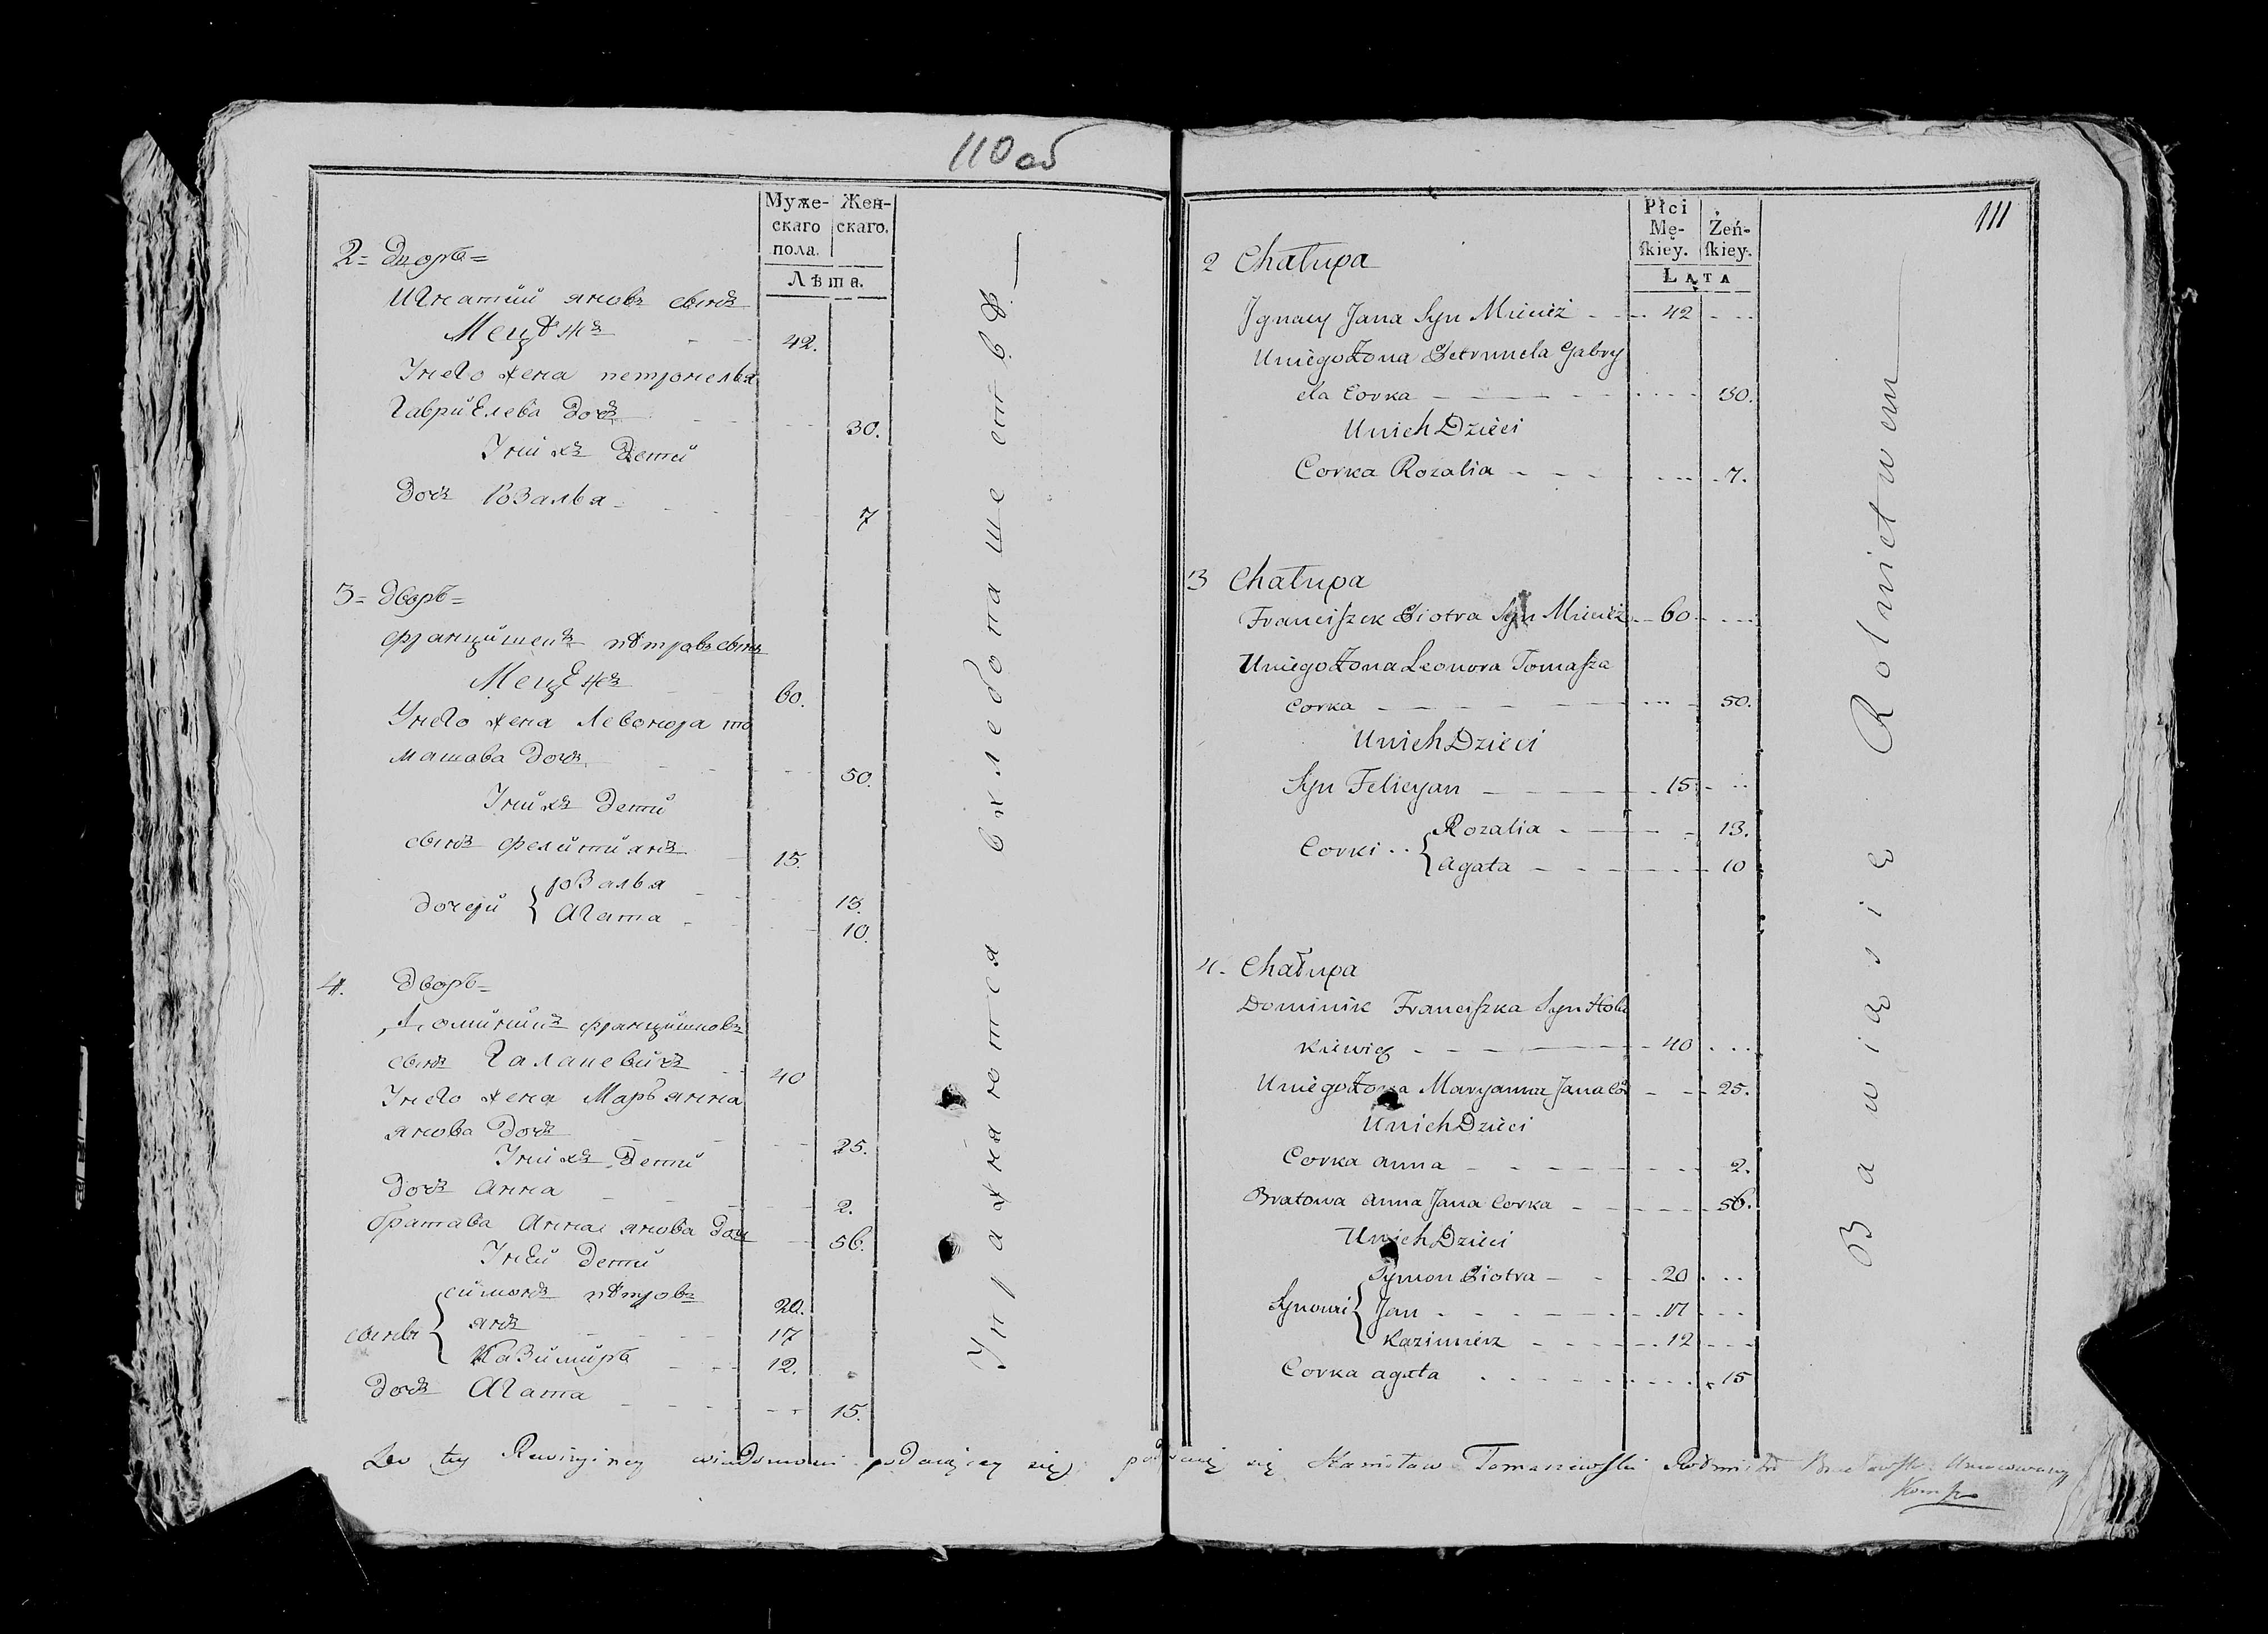 110 об
Муже-
скаго
пола.
Жен-
скаго.
Лѣта.
2 = Дворъ =
Игнатий яновъ сынъ
Мецѣнъ 42.
Унего жена петронелья
Гавриелева дочъ 30.
Унихъ Дети
Дочъ Розалья 7
3 = Дворъ =
францишекъ пѣтровъ сынъ
Мецѣнъ 60.
Унего жена Левонора то
машова дочъ 50.
Унихъ Дети
сынъ фелитиянъ 15.
дочери { розалья 13.
Агата 10.
4. Дворъ =
Доминикъ францишковъ
сынъ 40
Унего жена Марьянна
янова дочъ 25.
Унихъ Дети
Дочъ Анна 2.
братава Анна янова доч 56.
Уней Дети
сыны { симонъ пѣтровъ 20.
янъ 17
Казимиръ 12.
Дочъ Агата 15.
Упражняются вхледопашестве
111
Płci
Mę-
ſkiey.
Żeń-
ſkiey.
LATA
2 Chałupa
Jgnacy Jana Syn Micież 42
Uniego Zona Petrunela Gabry
ela Corka 30.
Unich Dzieci
Corka Rozalia 7.
3 Chałupa
Franciſzek Piotra Syn Micież 60
Uniego Zona Leonora Tomaſza
Corka 50.
Unich Dzieci
Syn Felicyan 15
Corki { Rozalia 13.
Agata 10
4. Chałupa
Dominik Franciſzka Syn Hołu
kiewicz 40
Uniego Zona Maryanna Jana Cór 25.
Unich Dzieci
Corka Anna 2.
Bratowa Anna Jana Corka 56.
Unich Dzieci
Synowi { Symon Piotra 20
Jan 17
Kazimierz 12
Corka agata 15
Bawią się Rolnictwem
Do tey Rewizyiney wiadomosci podaiącey się podpisuię się Stanisław Tomaszewski